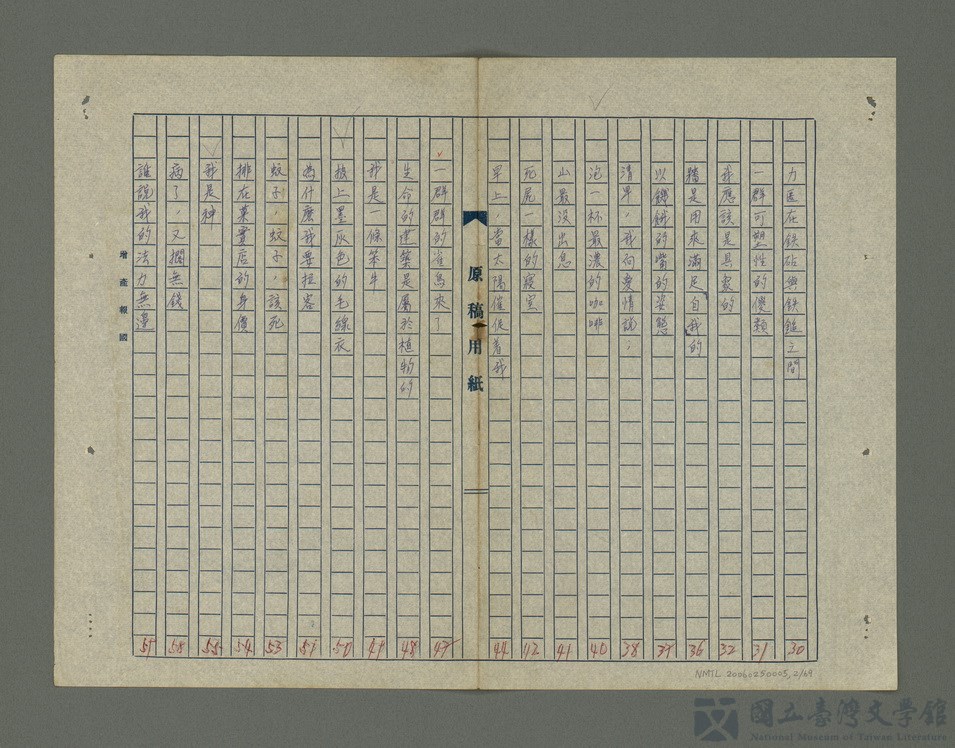 力匿在鉄砧與鉄鎚之間 30
一群可塑性的儍類 31
我應該是具象的 32
牆是用來滿足自我的 36
以鵝的嘴的姿態 37
清早,我向愛情說, 38
泡一杯最濃的咖啡 40
山最沒出息 41
死屍一樣的寢室 42
早上,當太陽催促著我 44
原稿用紙
一群群的雀鳥來了 47
生命的建築是屬於植物的 48
我是一條笨牛 49
披上墨灰色的毛線衣 50
為什麼我要扭捏 51
蚊子,蚊子,該死 53
排在菓蔔店的身價 54
我是神 55
病了,又擱無錢 58
誰說我的法力無邊 57
增產報國
NMTL 20060250005,2/69
國立臺灣文學館
National Museum of Taiwan Literature